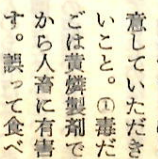 意していただき
いこと。①毒だ
ごは黄燐製剤で
から人畜に有害
す。誤って食べ